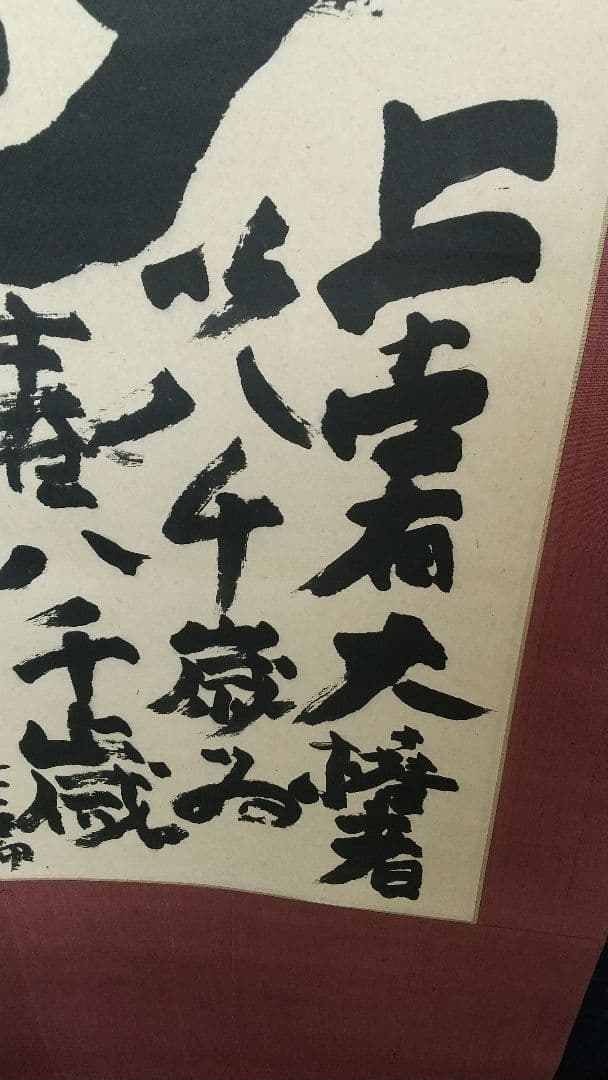 上古有大椿者
以八千歳為
春八千歳